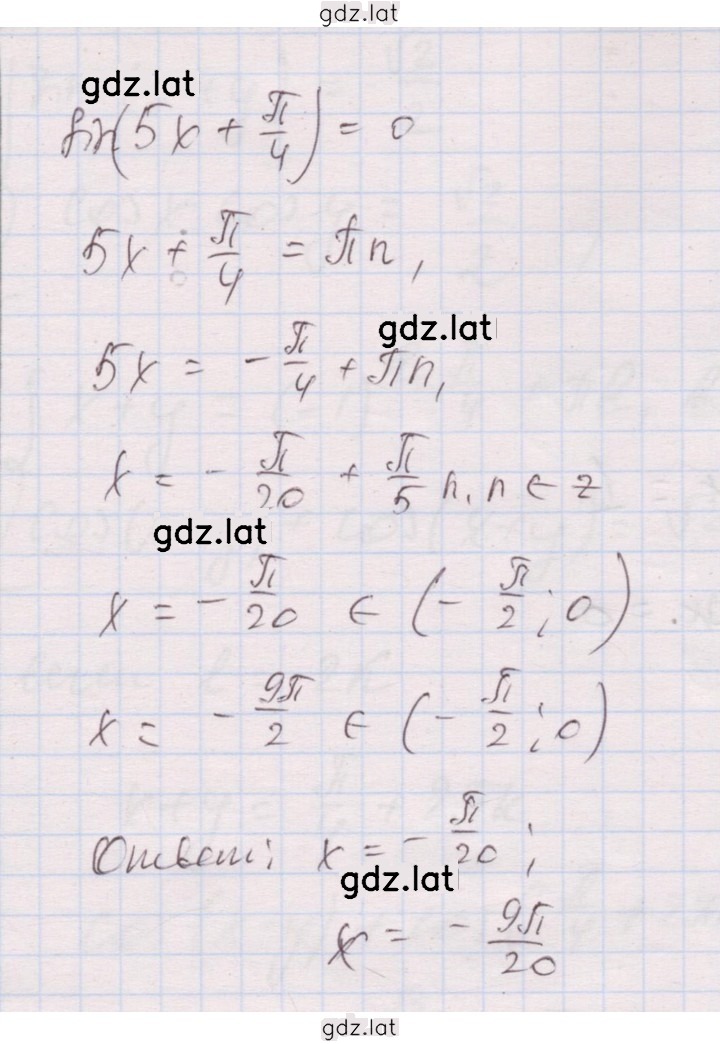 gdz.lat
gdz.lat
sin(5x + π/4) = 0
5x + π/4 = πn,
gdz.lat
5x = - π/4 + πn,
x = - π/20 + π/5 n, n ∈ z
gdz.lat
x = - π/20 ∈ (- π/2; 0)
x = - 9π/2 ∈ (- π/2; 0)
Ответ: x = - π/20;
gdz.lat
x = - 9π/20
gdz.lat